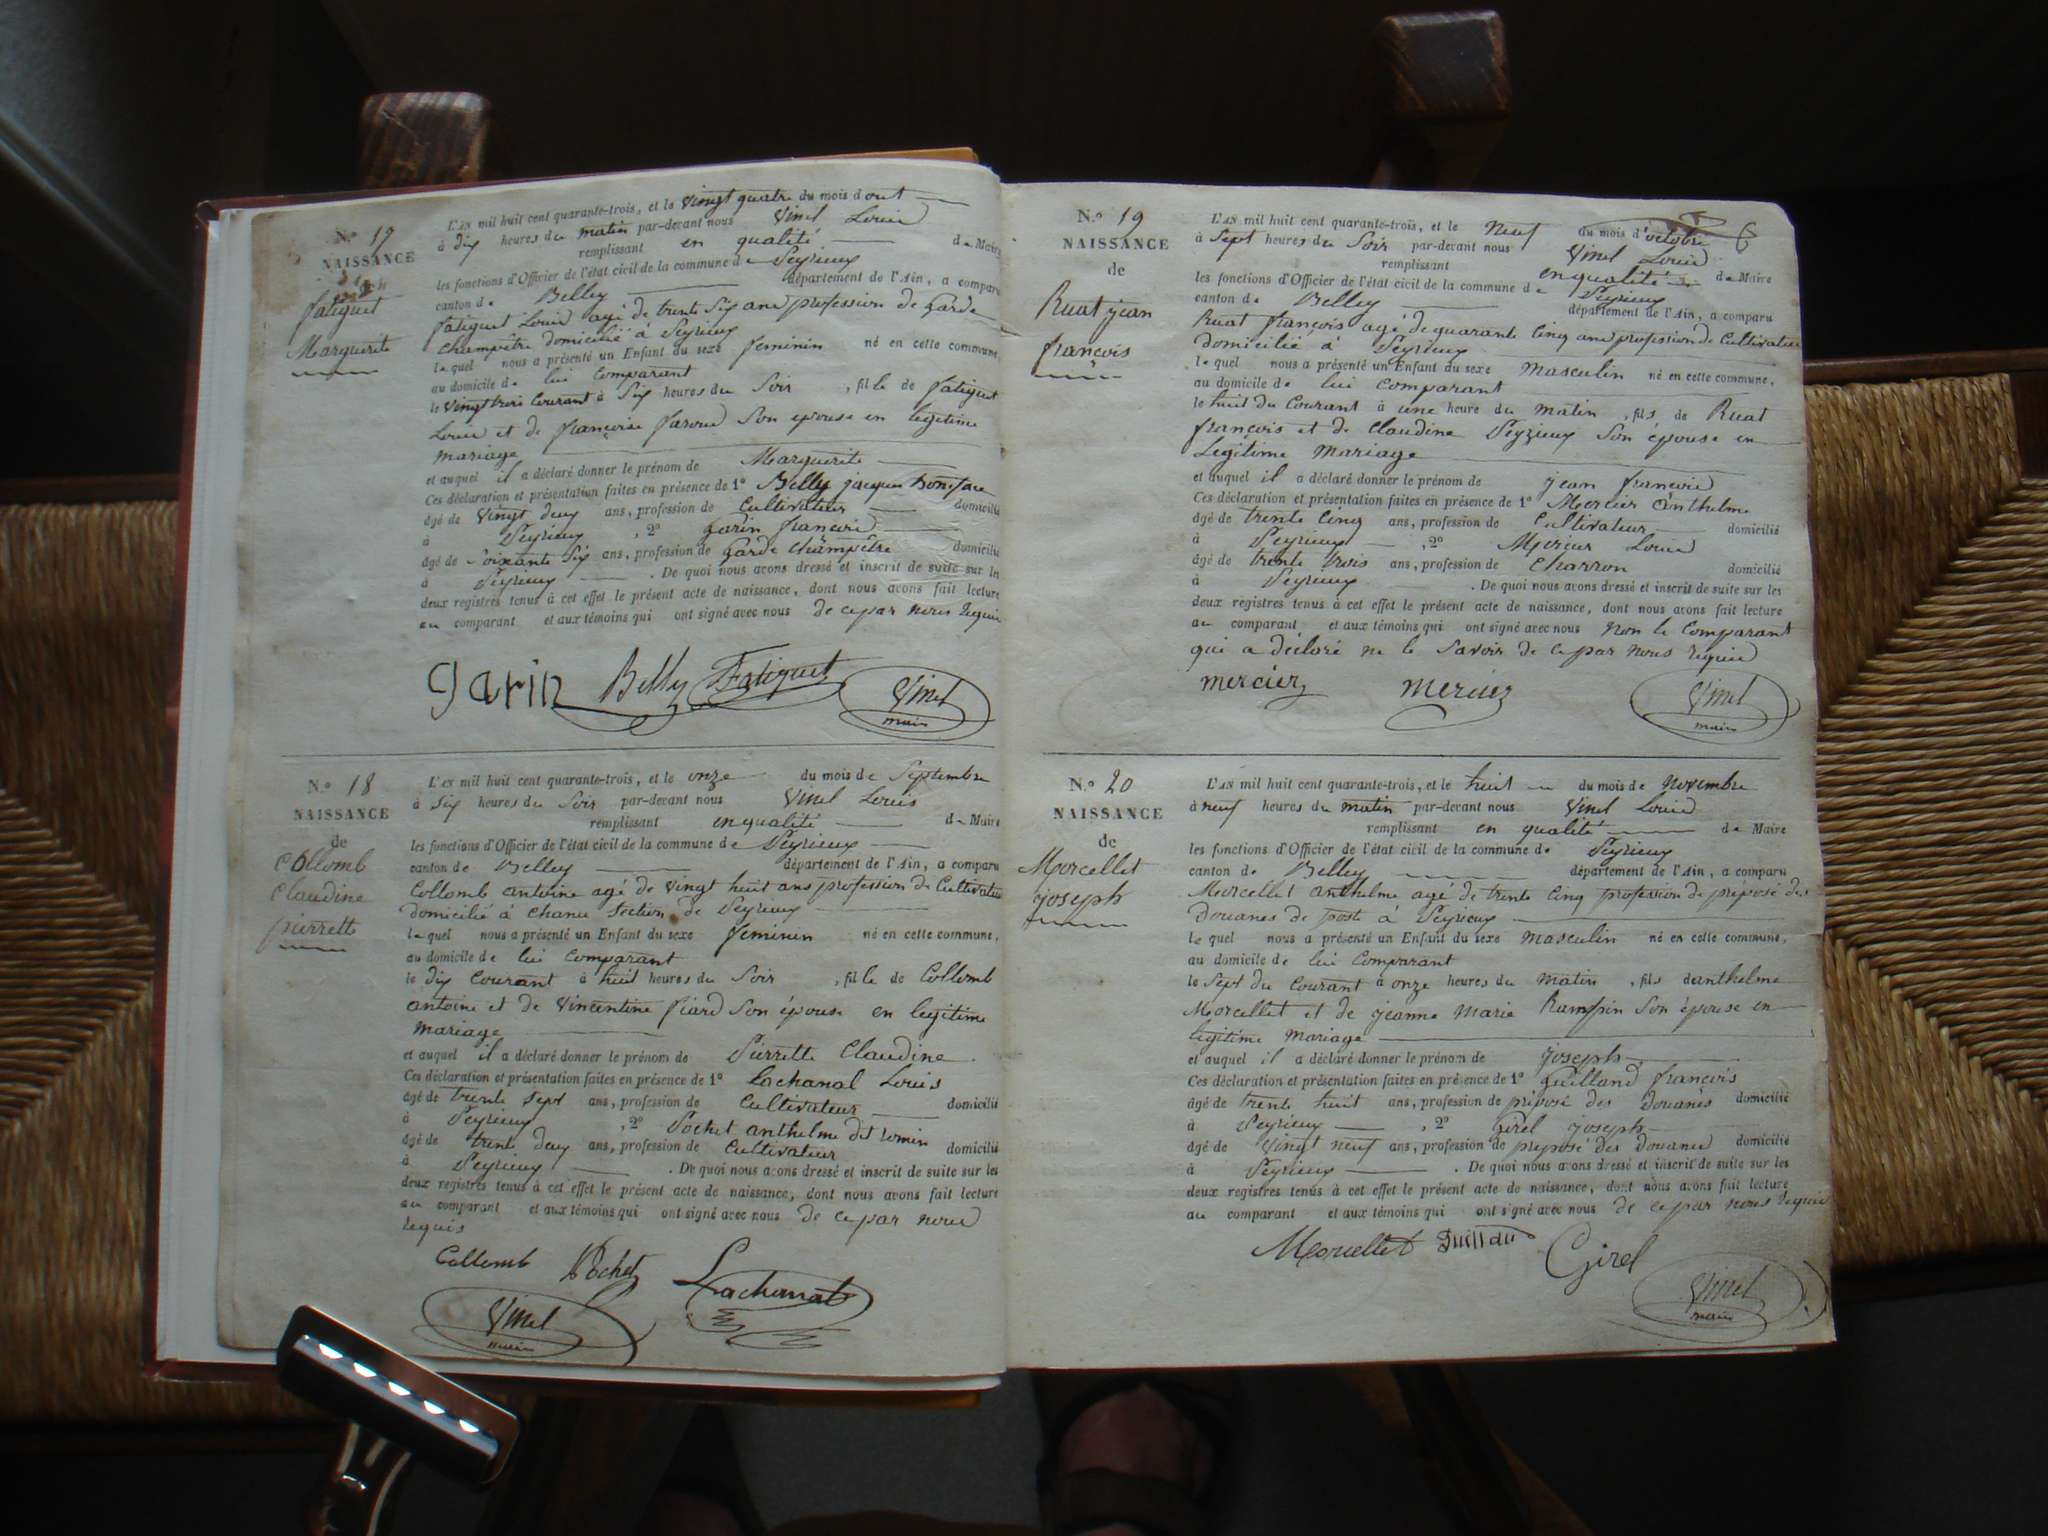 N.° 17
NAISSANCE
de
fatiguet
Marguerite
L'AN mil huit cent quarante-trois, et le vingt quatre du mois d out
à dix heures du matin par-devant nous Vinel Louis
remplissant en qualité de Maire
les fonctions d'Officier de l'état civil de la commune de Peyrieux
canton de Belley département de l'Ain, a comparu
fatiguet Louis agé de trente six ans profession de garde
champêtre domicilié à Peyrieux
lequel nous a présenté un Enfant du sexe feminin né en cette commune,
au domicile de lui comparant
le vingt trois courant à six heures du Soir , fille de fatiguet
Louis et de françoise Son epouse en legitime
mariage
et auquel il a déclaré donner le prénom de Marguerite
Ces déclaration et présentation faites en présence de 1° Belly jacques
âgé de vingt deux ans, profession de Cultivateur domicilié
à Peyrieux , 2° garin françois
âgé de Soixante six ans, profession de garde champêtre domicilié
à Peyrieux . De quoi nous avons dressé et inscrit de suite sur les
deux registres tenus à cet effet le présent acte de naissance, dont nous avons fait lecture
au comparant et aux témoins qui ont signé avec nous de ce par nous requis
garin Belly Fatiguet Vinel
maire
N.° 18
NAISSANCE
de
Collomb
Claudine
pierrette
L'AN mil huit cent quarante-trois, et le onze du mois de Septembre
à six heures du Soir par-devant nous Vinel Louis
remplissant en qualité de Maire
les fonctions d'Officier de l'état civil de la commune de Peyrieux
canton de Belley département de l'Ain, a comparu
Collomb antoine agé de vingt huit ans profession de Cultivateur
domicilié à chanu section de Peyrieux
lequel nous a présenté un Enfant du sexe feminin né en cette commune,
au domicile de lui comparant
le dix courant à huit heures du Soir , fille de Collomb
antoine et de Vincentine fiard Son épouse en legitime
mariage
et auquel il a déclaré donner le prénom de Pierrette Claudine
Ces déclaration et présentation faites en présence de 1° Lachanal Louis
âgé de trente sept ans, profession de Cultivateur domicilié
à Peyrieux , 2° Pochet anthelme dit romin
âgé de trente deux ans, profession de Cultivateur domicilié
à Peyrieux . De quoi nous avons dressé et inscrit de suite sur les
deux registres tenus à cet effet le présent acte de naissance, dont nous avons fait lecture
au comparant et aux témoins qui ont signé avec nous de ce par nous
requis
Collomb Pochet Lachanal
Vinel
maire
6
N.° 19
NAISSANCE
de
Ruat jean
françois
L'AN mil huit cent quarante-trois, et le Neuf du mois d'octobre
à Sept heures du Soir par-devant nous Vinel Louis
remplissant en qualité de Maire
les fonctions d'Officier de l'état civil de la commune de Peyrieux
canton de Belley département de l'Ain, a comparu
Ruat françois agé de quarante cinq ans profession de Cultivateur
domicilié à Peyrieux
lequel nous a présenté un Enfant du sexe masculin né en cette commune,
au domicile de lui comparant
le huit du Courant à une heure du matin , fils de Ruat
françois et de Claudine Peyzieux Son épouse en
Légitime Mariage
et auquel il a déclaré donner le prénom de jean françois
Ces déclaration et présentation faites en présence de 1° Mercier anthelme
âgé de trente cinq ans, profession de Cultivateur domicilié
à Peyrieux , 2° Mercier Louis
âgé de trente trois ans, profession de Charron domicilié
à Peyrieux . De quoi nous avons dressé et inscrit de suite sur les
deux registres tenus à cet effet le présent acte de naissance, dont nous avons fait lecture
au comparant et aux témoins qui ont signé avec nous non le Comparant
qui a déclaré ne le Savoir de ce par nous requis
mercier mercier Vinel
maire
N.° 20
NAISSANCE
de
Morcellet
joseph
L'AN mil huit cent quarante-trois, et le huit du mois de novembre
à neuf heures du matin par-devant nous Vinel Louis
remplissant en qualité de Maire
les fonctions d'Officier de l'état civil de la commune de Peyrieux
canton de Belley département de l'Ain, a comparu
Morcellet anthelme agé de trente cinq profession de préposé des
douanes de poste à Peyrieux
lequel nous a présenté un Enfant du sexe masculin né en cette commune,
au domicile de lui Comparant
le Sept du Courant à onze heures du matin , fils danthelme
Morcellet et de jeanne Marie Rampin Son épouse en
legitime mariage
et auquel il a déclaré donner le prénom de joseph
Ces déclaration et présentation faites en présence de 1° Guilland françois
âgé de trente huit ans, profession de préposé des Douanes domicilié
à Peyrieux , 2° Girel joseph
âgé de vingt neuf ans, profession de preposé des douanes domicilié
à Peyrieux . De quoi nous avons dressé et inscrit de suite sur les
deux registres tenus à cet effet le présent acte de naissance, dont nous avons fait lecture
au comparant et aux témoins qui ont signé avec nous de ce par nous requis
Morcellet Girel
Vinel
maire